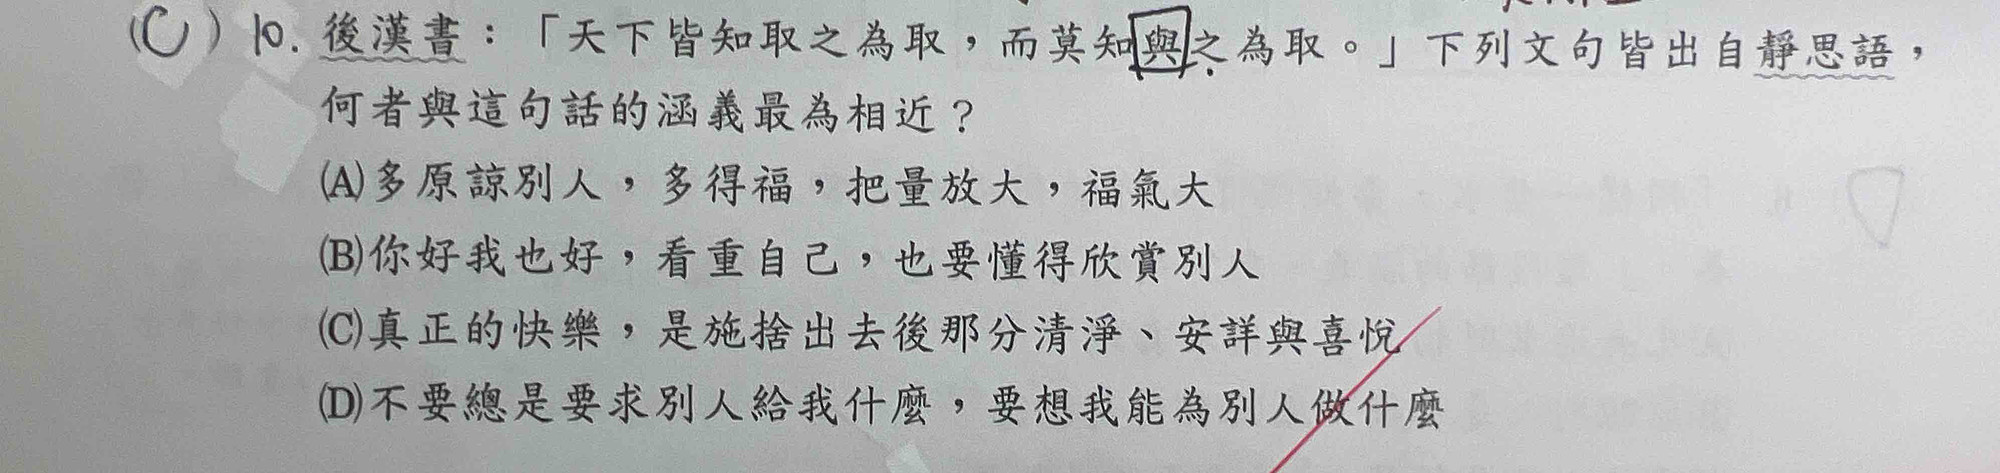 (C) 10. 後漢書：「天下皆知取之為取，而莫知與之為取。」下列文句皆出自靜思語，
何者與這句話的涵義最為相近？
(A)多原諒別人，多得福，把量放大，福氣大
(B)你好我也好，看重自己，也要懂得欣賞別人
(C)真正的快樂，是施捨出去後那分清淨、安詳與喜悅
(D)不要總是要求別人給我什麼，要想我能為別人做什麼